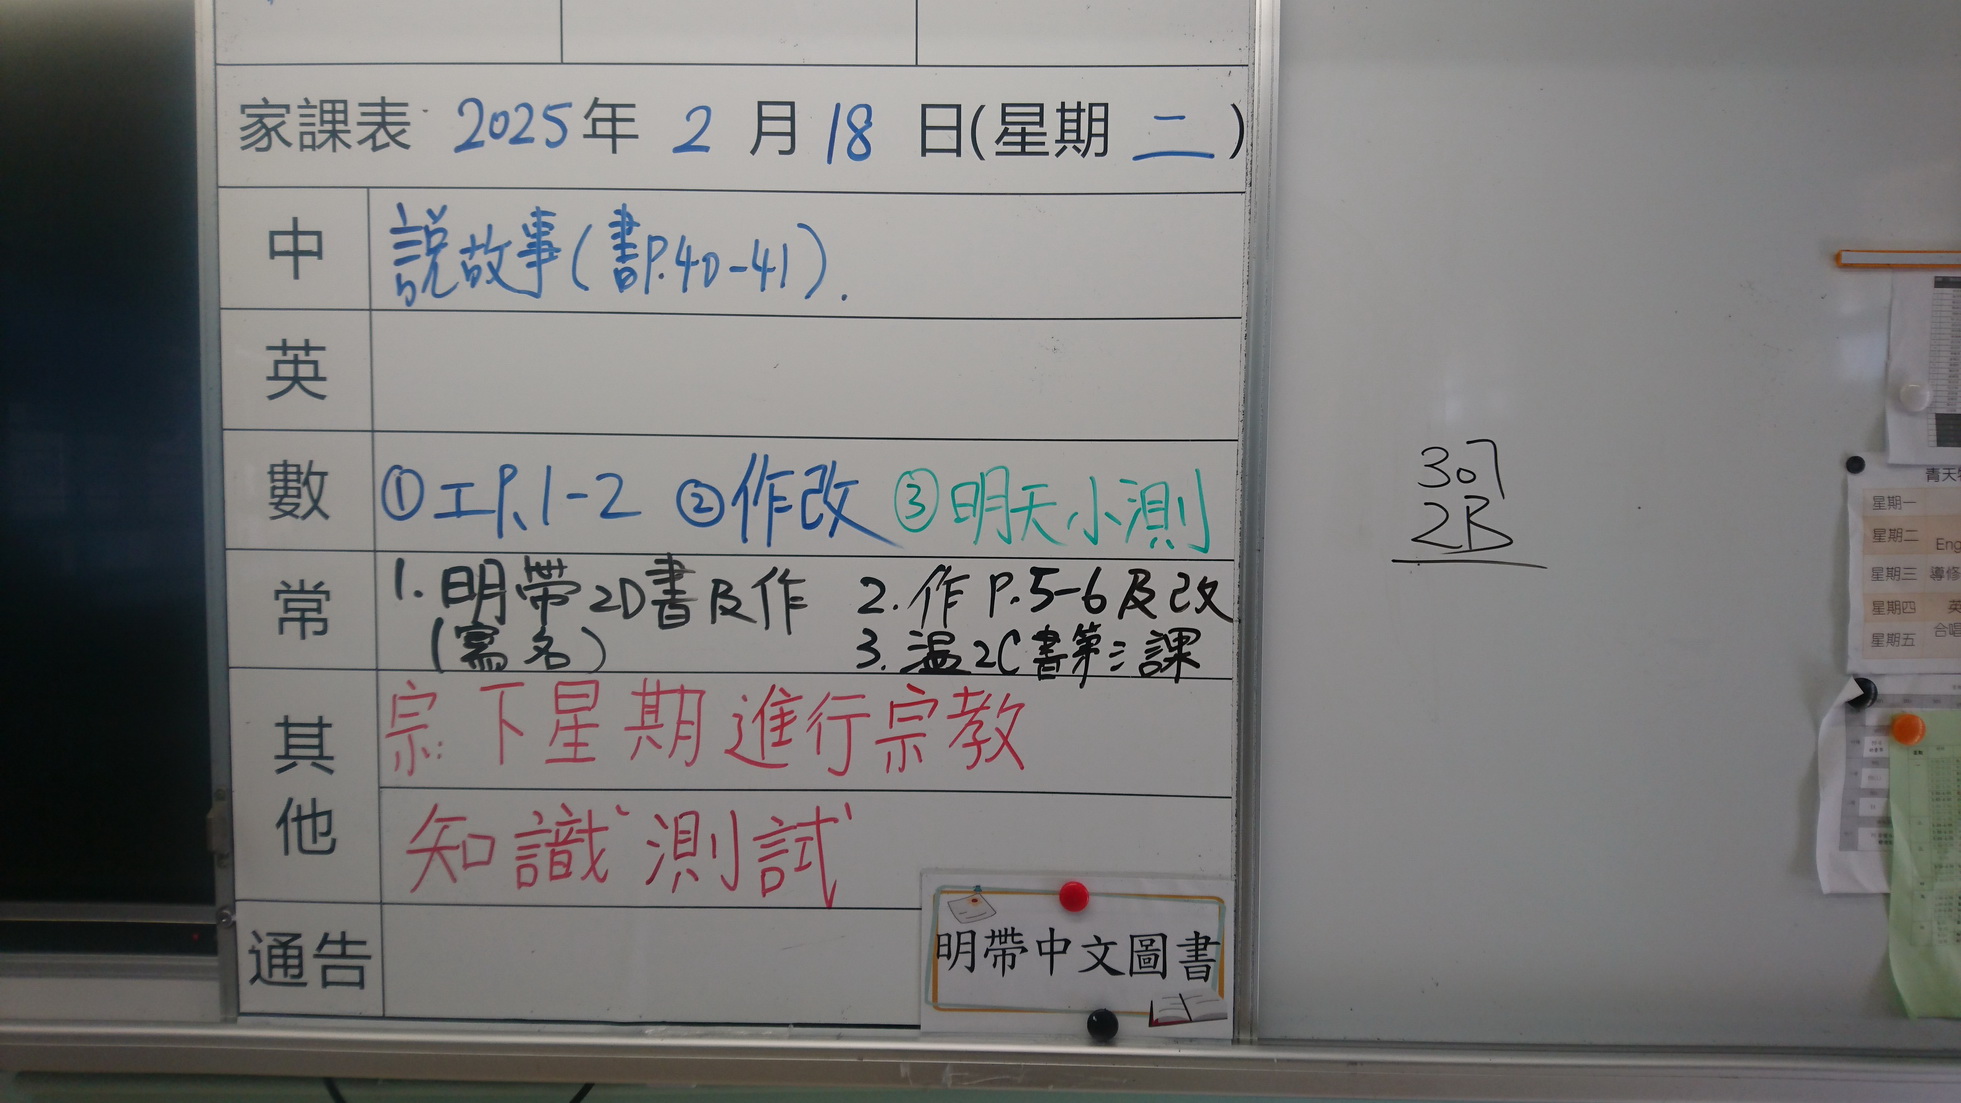 家課表 2025年 2 月 18 日(星期 二 )
中 説故事(書P.40-41).
英
數 ①工P.1-2 ②作改 ③明天小測
常 1. 明帶2D書及作 2. 作 P.5-6 及改
(寫名) 3. 溫2C書第三課
其他 宗: 下星期進行宗教
知識測試
通告
明帶中文圖書
307
2B
青天
星期一
星期二 Eng
星期三 導修
星期四 英
星期五 合唱